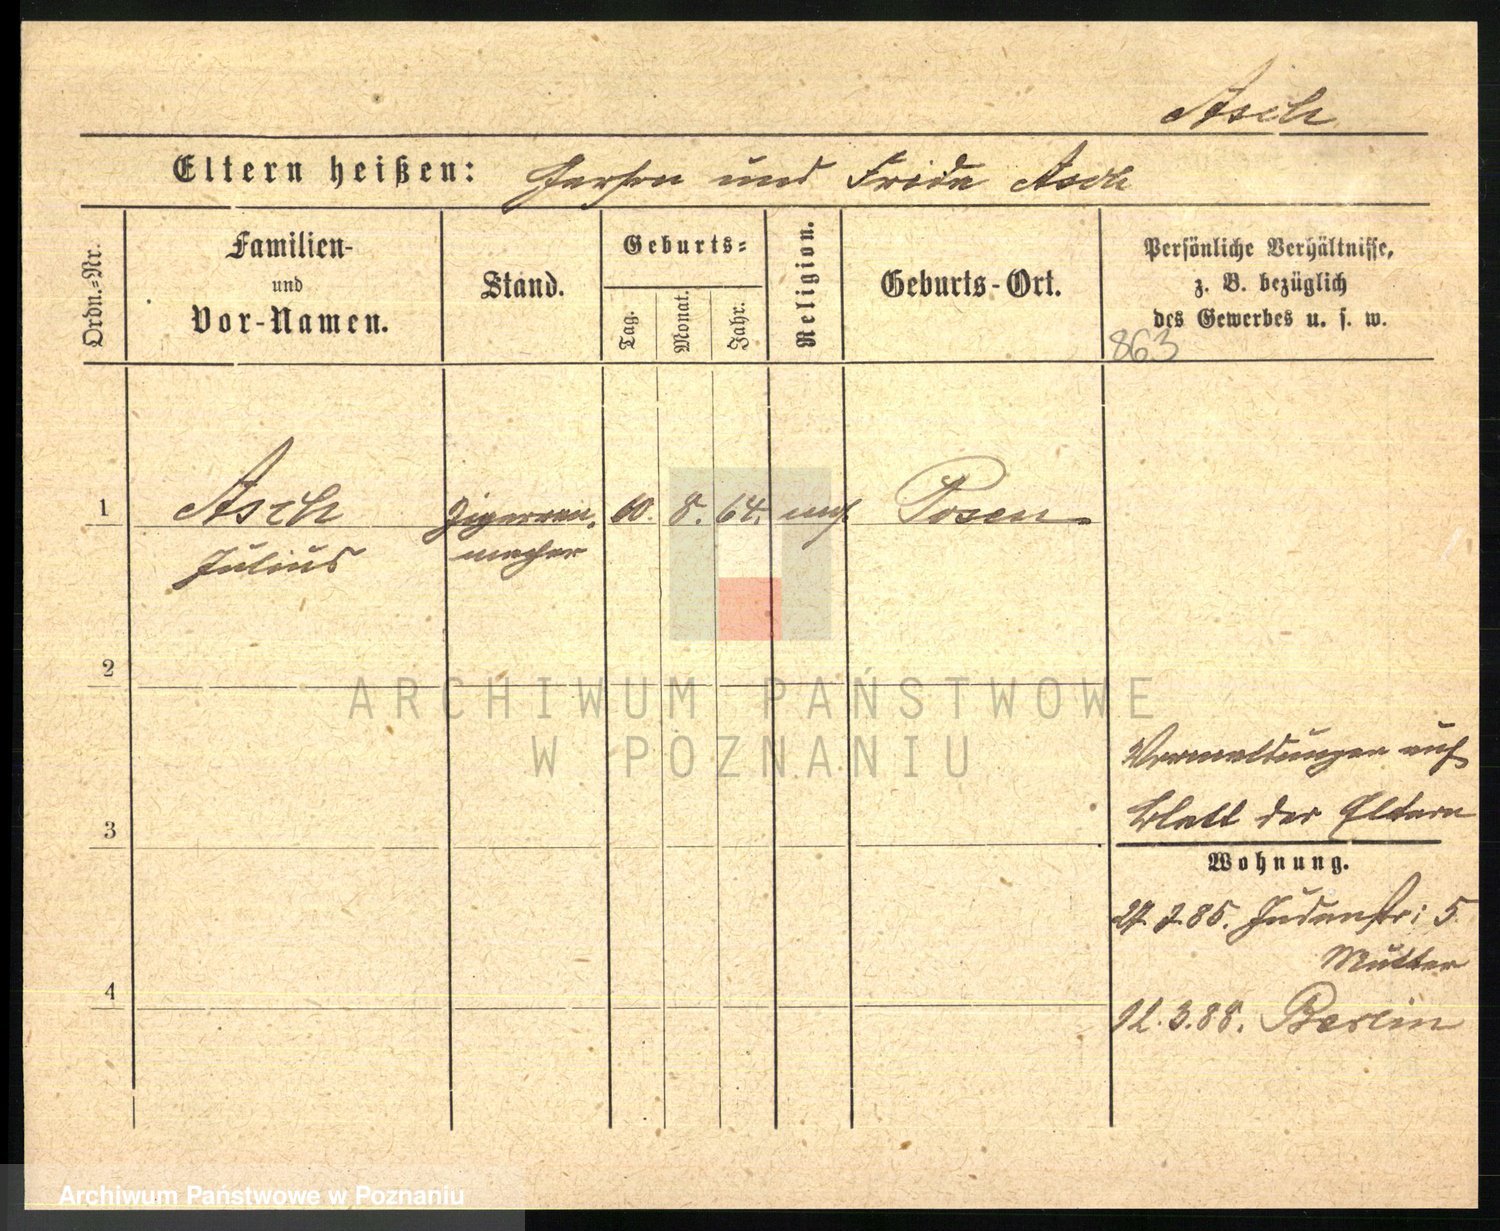 Asch
Eltern heißen: Gerson und Frida Asch
Ordn.-Nr.
Familien-
und
Vor-Namen.
Stand.
Geburts-
Tag.
Monat.
Jahr.
Religion.
Geburts-Ort.
Persönliche Verhältnisse,
z. B. bezüglich
des Gewerbes u. s. w.
863
1
Asch
Julius
Zigarren,
macher
8. 64.
Posen
2
ARCHIWUM PAŃSTWOWE
W POZNANIU
Vermeldungen auf
Blatt der Eltern
3
Wohnung.
85. Judenstr: 5
Mutter
4
3.88. Berlin
Archiwum Państwowe w Poznaniu